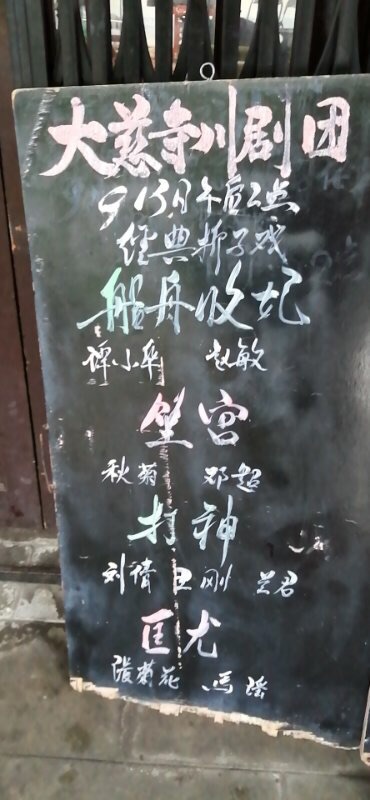 大慈寺川剧团
9.13日午后2点
经典折子戏
船舟收妃
谭小军 赵敏
坐宫
秋菊 邓超
打神
刘倩 王刚 兰君
匡尤
张菊花 马